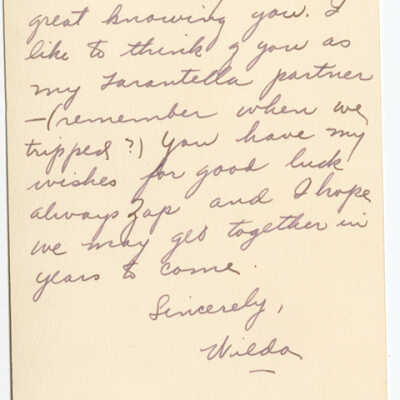 great knowing you. I
like to think of you as
my Tarantella partner
-(remember when we
tripped?) You have my
wishes for good luck
always Zap and I hope
we may get together in
years to come.
Sincerely,
Wilda